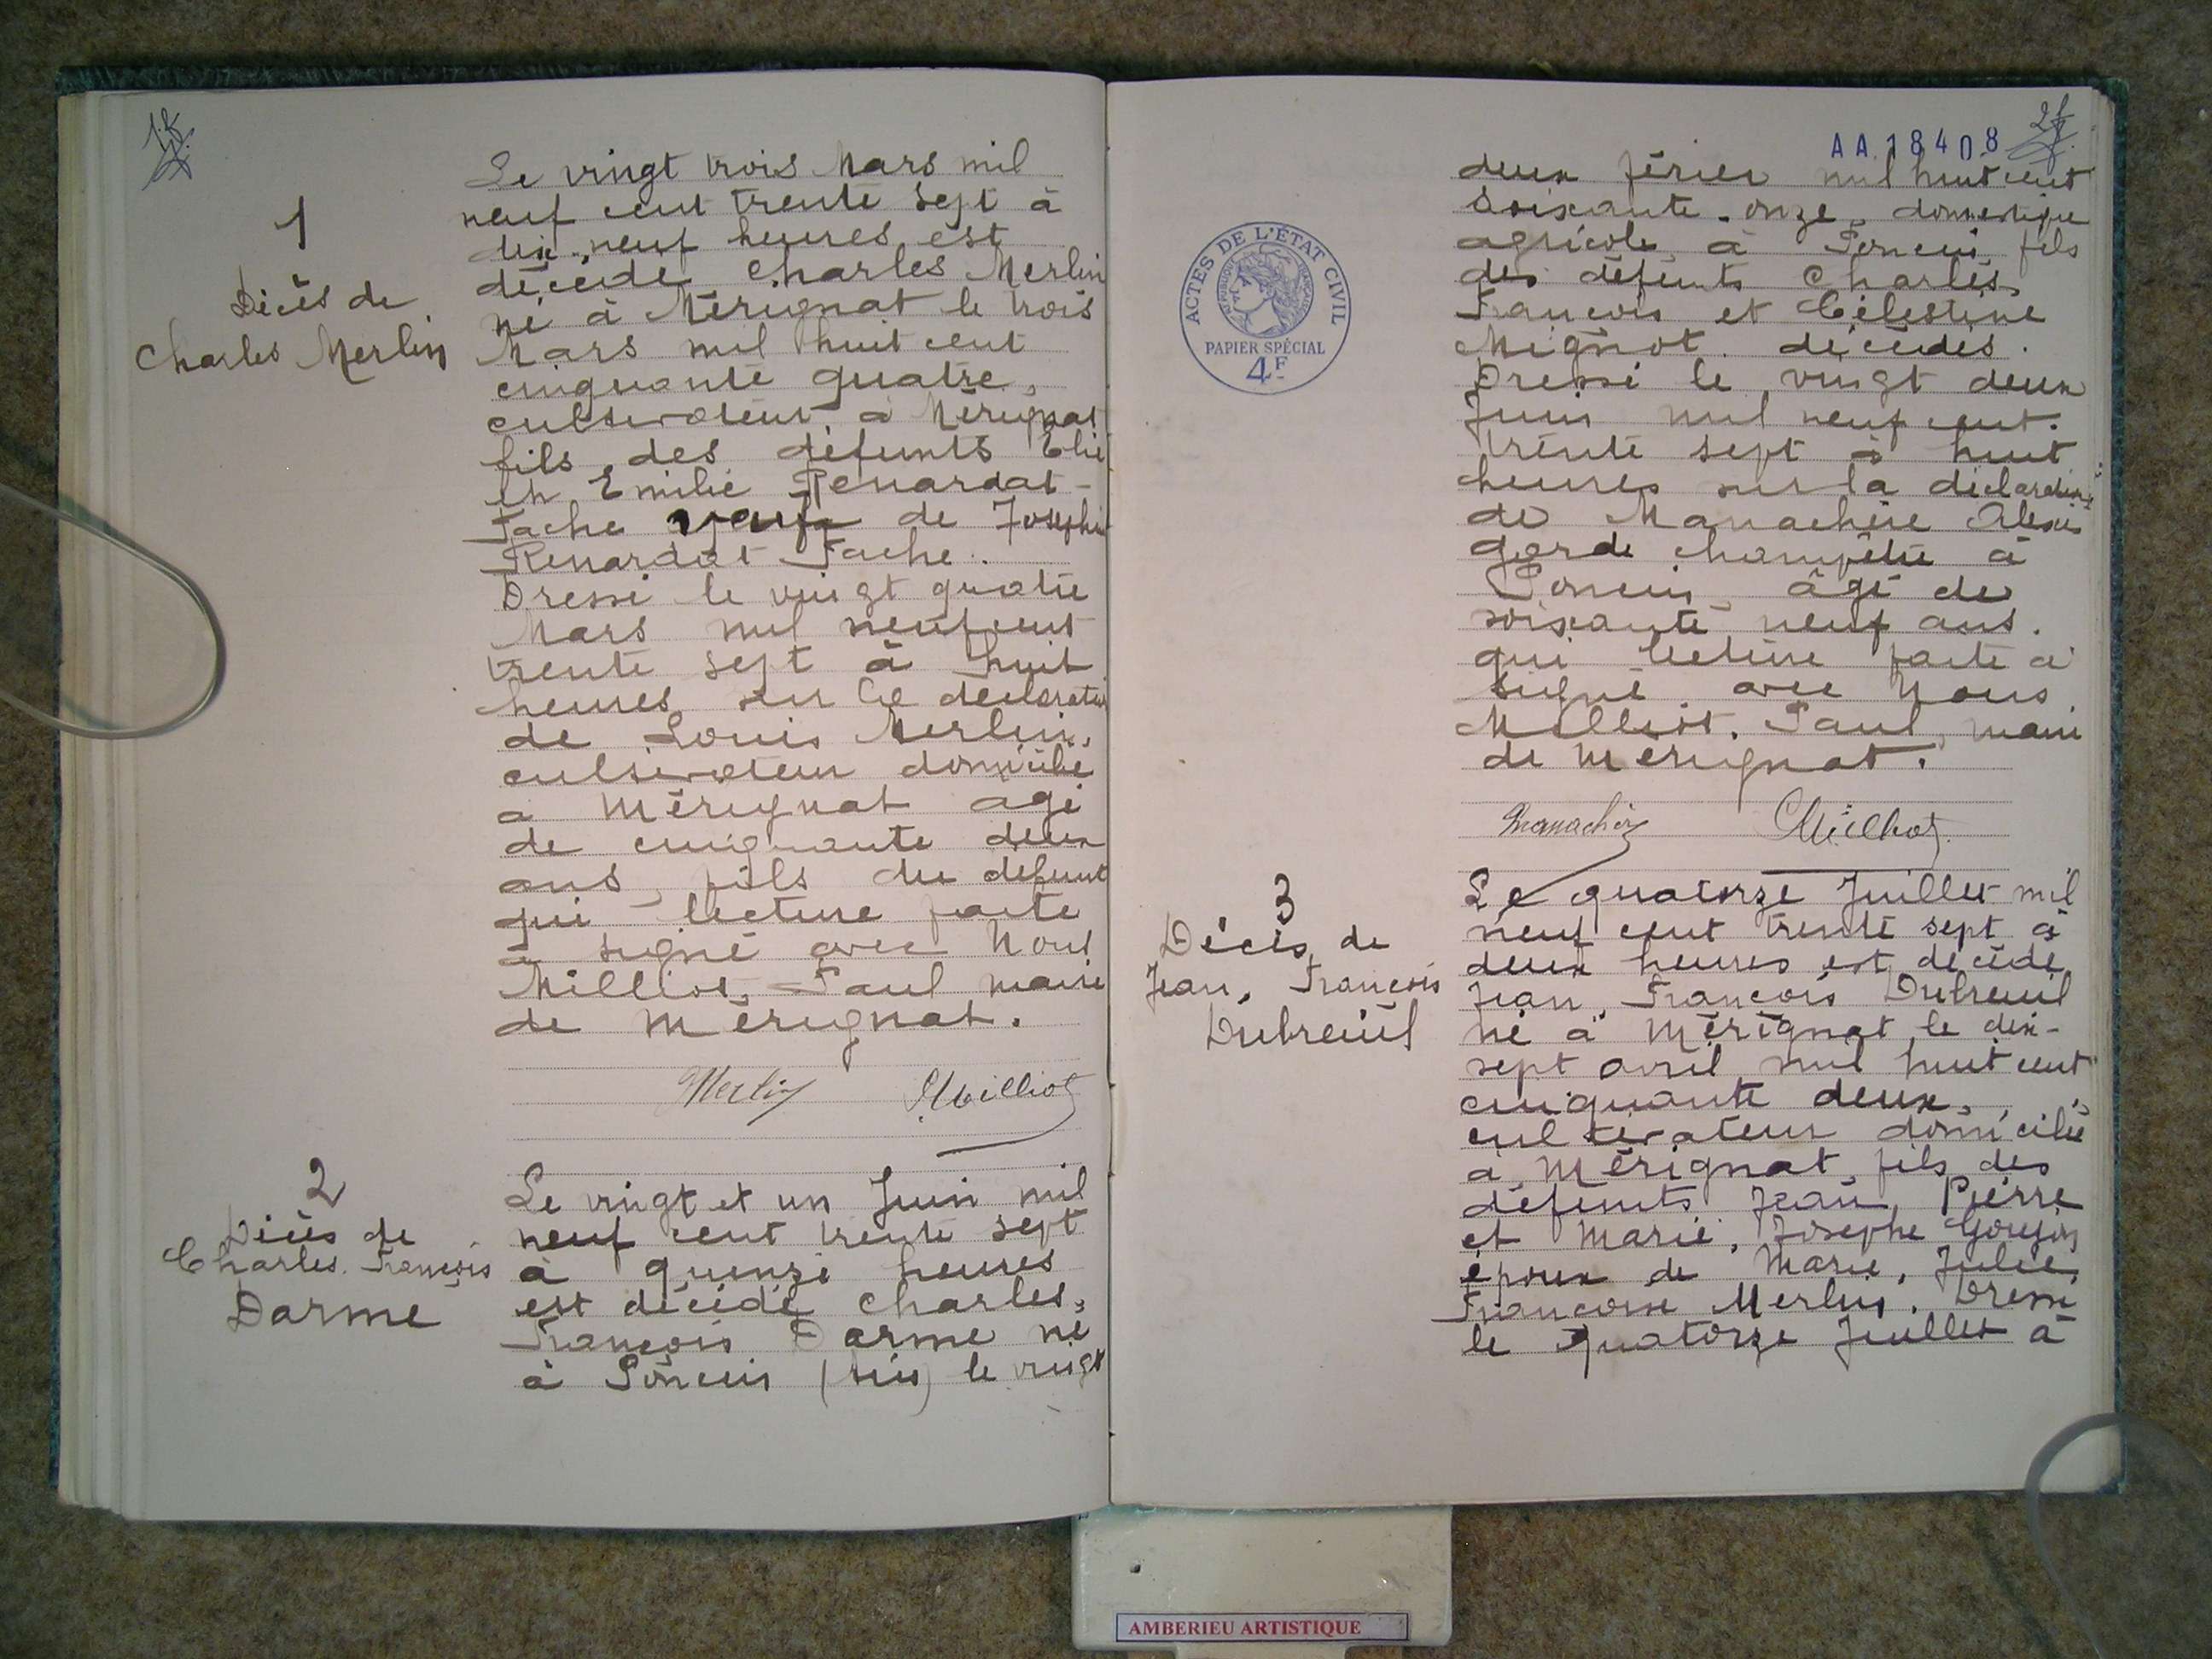 1
Décès de
Charles Merlin
Le vingt trois Mars mil
neuf cent trente sept à
dix-neuf heures est
décédé Charles Merlin
né à Mérignat le trois
Mars mil huit cent
cinquante quatre,
cultivateur à Mérignat
fils des défunts Elie
et Emilie Renardat-
Fache veuf de Josephine
Renardat Fache.
Dressé le vingt quatre
Mars mil neuf cent
trente sept à huit
heures sur la déclaration
de Louis Merlin,
cultivateur domicilié
à Mérignat agé
de cinquante deux
ans, fils du défunt
qui lecture faite
a signé avec Nous
Milliot, Paul maire
de Mérignat.
Merlin Milliot
2
Décès de
Charles François
Darme
Le vingt et un Juin mil
neuf cent trente sept
à quinze heures
est décédé Charles,
François Darme né
à Poncin (Ain) le vingt
AA 18408
ACTES DE L'ÉTAT CIVIL
RÉPUBLIQUE FRANÇAISE
PAPIER SPÉCIAL
4F
deux février mil huit cent
soixante-onze, domestique
agricole à Poncin, fils
des défunts Charles
François et Célestine
Mignot décédés.
Dressé le vingt deux
Juin mil neuf cent.
trente sept à huit
heures sur la déclaration
de Manachère Alexis
garde champêtre à
Poncin, âgé de
soixante neuf ans.
qui lecture faite a
signé avec Nous
Milliot, Paul, maire
de Mérignat.
Milliot
3
Décès de
Jean, François
Dubreuil
Le quatorze Juillet mil
neuf cent trente sept à
deux heures est décédé
Jean, François Dubreuil
né à Mérignat le dix-
sept avril mil huit cent
cinquante deux,
cultivateur domicilié
à Mérignat, fils des
défunts Jean, Pierre
et Marie, Josephe Goujon
époux de Marie, Julie,
Françoise Merlin. Dressé
le quatorze Juillet à
AMBERIEU ARTISTIQUE